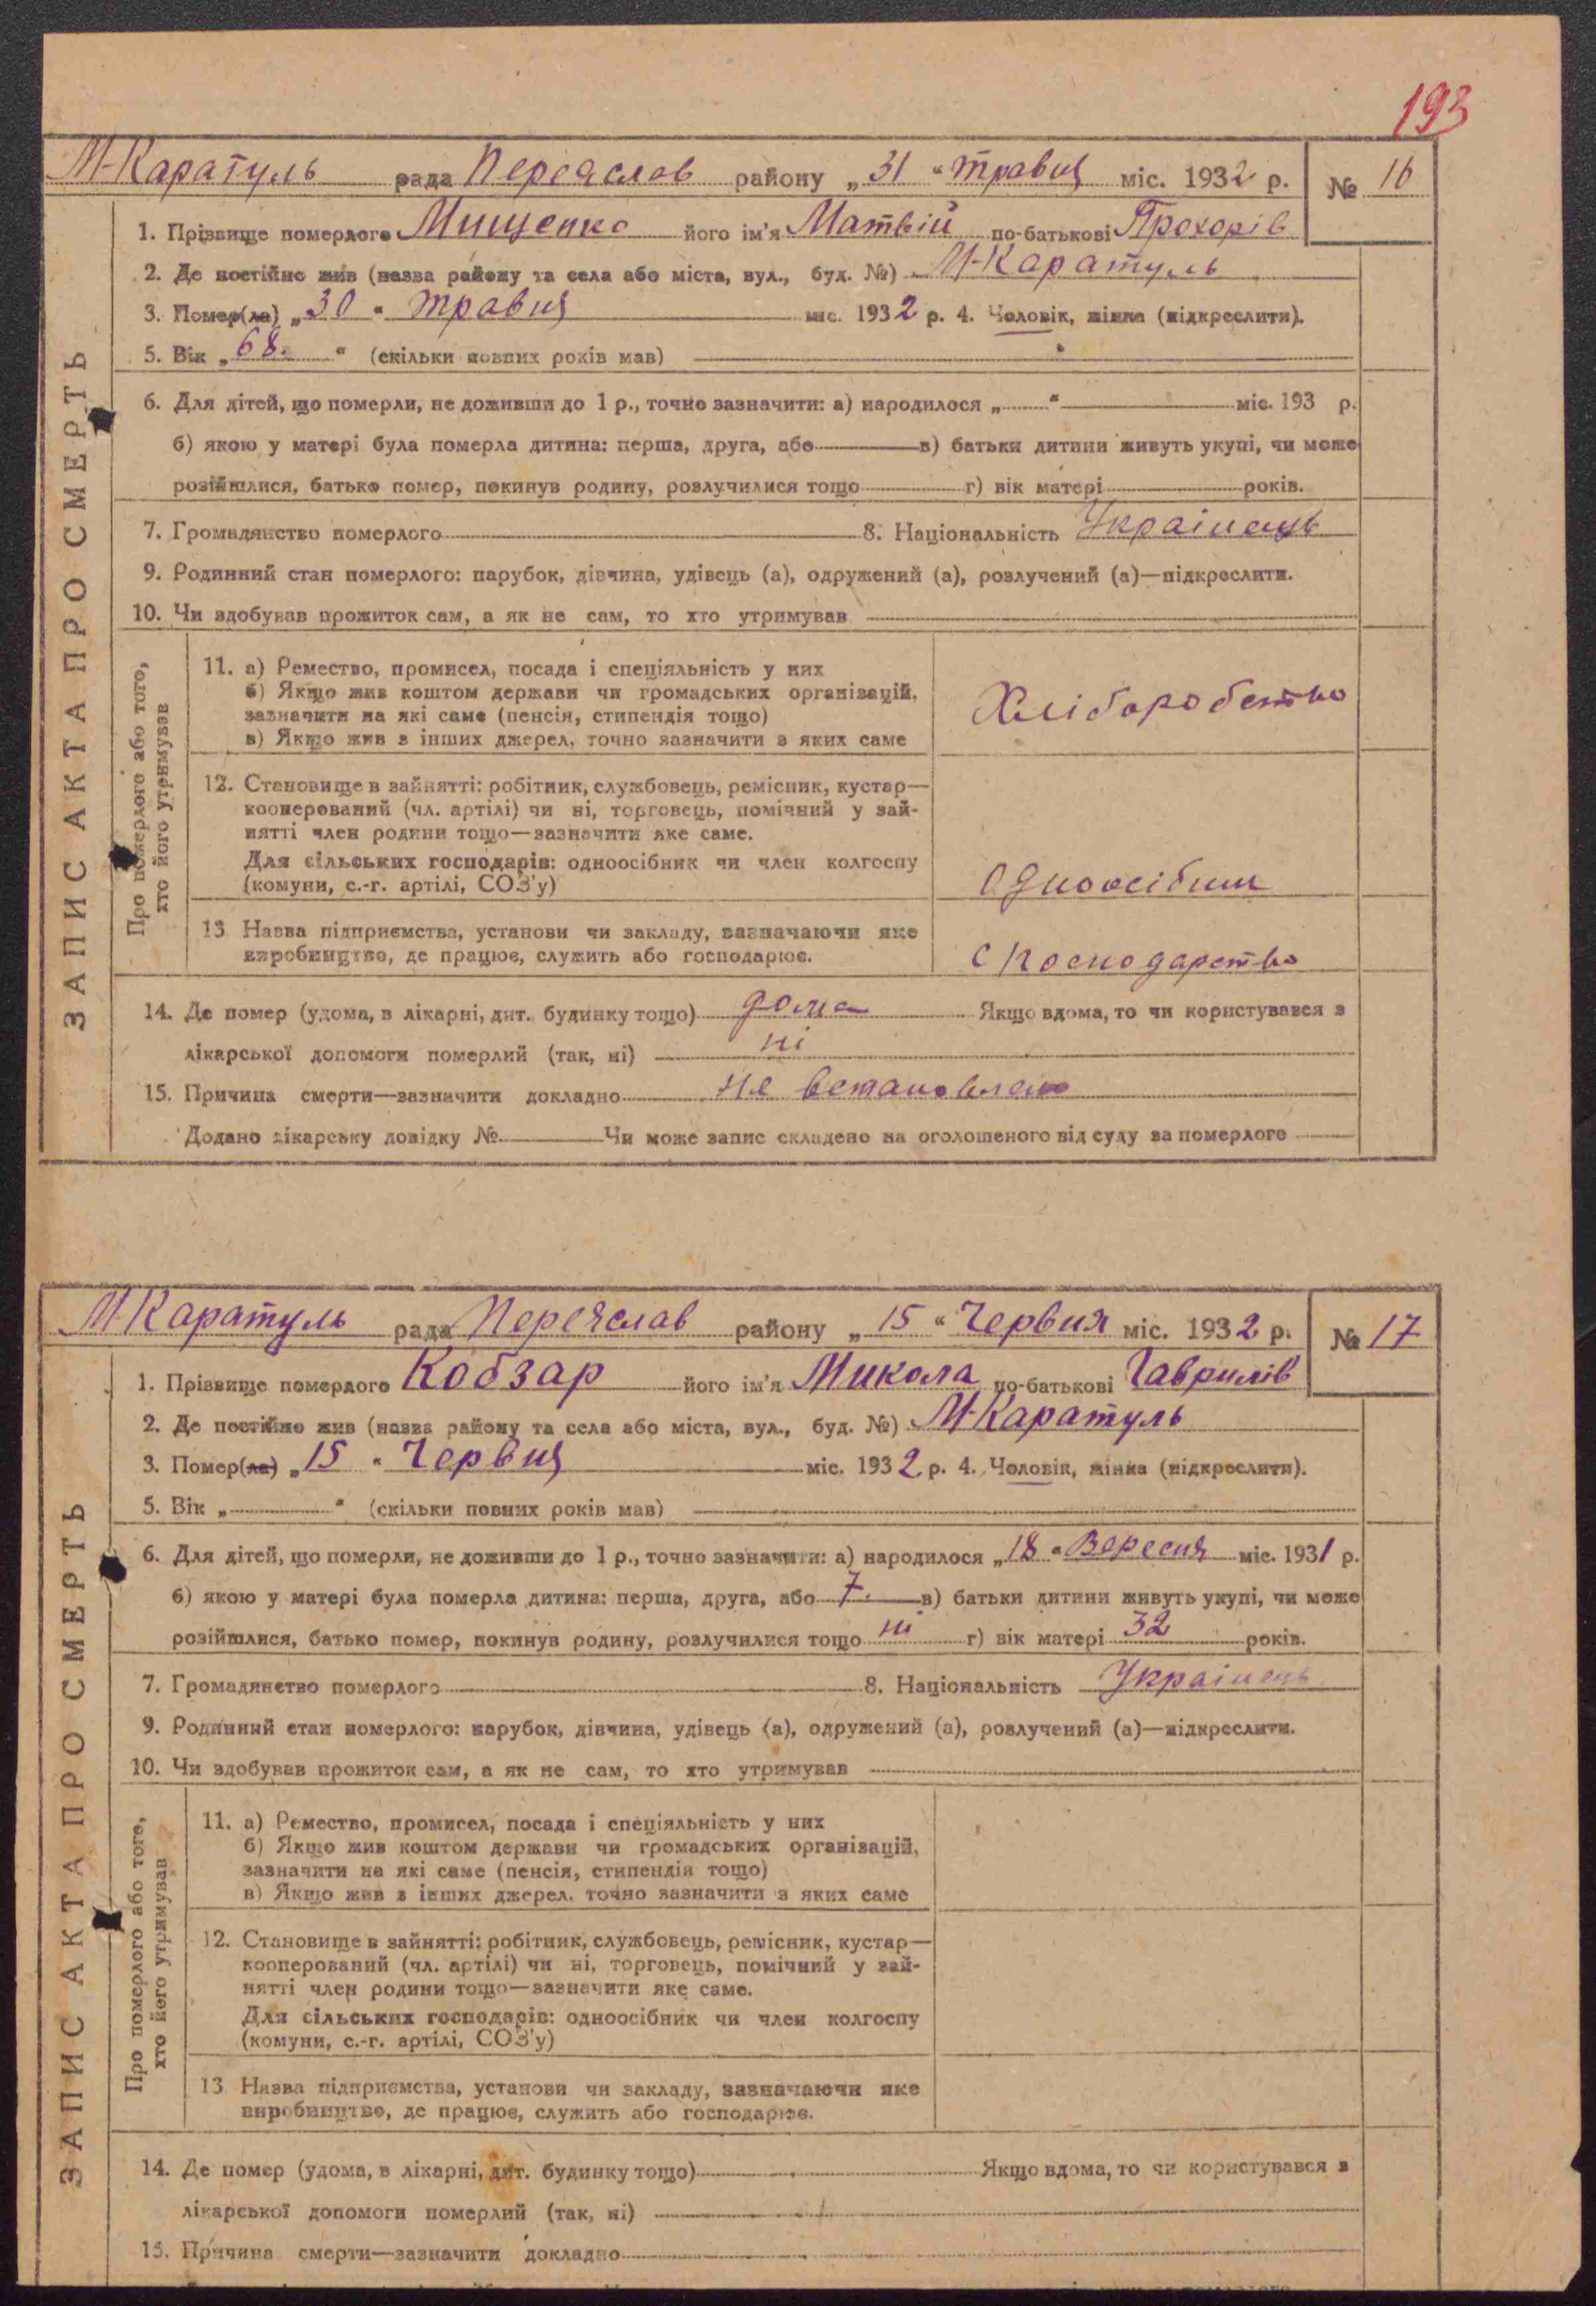 193
М-Каратуль рада Переяслав району „31“ травня міс. 1932 р. № 16
1. Прізвище померлого Мищенко його ім'я Матвій по-батькові Прохорів
2. Де постійно жив (назва району та села або міста, вул., буд. №) М-Каратуль
3. Помер(ла) „30“ травня міс. 1932 р. 4. Чоловік, жінка (підкреслити).
5. Вік „68.“ (скільки повних років мав)
6. Для дітей, що померли, не доживши до 1 р., точно зазначити: а) народилося „ “ міс. 193 р.
б) якою у матері була померла дитина: перша, друга, або в) батьки дитини живуть укупі, чи може
розійшлися, батько помер, покинув родину, розлучилися тощо г) вік матері років.
7. Громадянство померлого 8. Національність Українець
9. Родинний стан померлого: парубок, дівчина, удівець (а), одружений (а), розлучений (а)—підкреслити.
10. Чи здобував прожиток сам, а як не сам, то хто утримував
ЗАПИС АКТА ПРО СМЕРТЬ
Про померлого або того,
хто його утримував
11. а) Ремество, промисел, посада і спеціяльність у них
б) Якщо жив коштом держави чи громадських організацій,
зазначити на які саме (пенсія, стипендія тощо)
в) Якщо жив з інших джерел, точно зазначити з яких саме
Хліборобство
12. Становище в зайнятті: робітник, службовець, ремісник, кустар—
кооперований (чл. артілі) чи ні, торговець, помічний у зай-
нятті член родини тощо—зазначити яке саме.
Для сільських господарів: одноосібник чи член колгоспу
(комуни, с.-г. артілі, СОЗ'у)
Одноосібник
13 Назва підприємства, установи чи закладу, зазначаючи яке
виробництво, де працює, служить або господарює.
с господарство
14. Де помер (удома, в лікарні, дит. будинку тощо) дома Якщо вдома, то чи користувався з
лікарської допомоги померлий (так, ні) ні
15. Причина смерти—зазначити докладно не встановлено
Додано лікарську довідку № Чи може запис складено на оголошеного від суду за померлого
М-Каратуль рада Переяслав району „15“ Червня міс. 1932 р. № 17
1. Прізвище померлого Кобзар його ім'я Микола по-батькові Гаврилів
2. Де постійно жив (назва району та села або міста, вул., буд. №) М-Каратуль
3. Помер(ла) „15“ Червня міс. 1932 р. 4. Чоловік, жінка (підкреслити).
5. Вік „ “ (скільки повних років мав)
6. Для дітей, що померли, не доживши до 1 р., точно зазначити: а) народилося „18“ Вересня міс. 1931 р.
б) якою у матері була померла дитина: перша, друга, або 7. в) батьки дитини живуть укупі, чи може
розійшлися, батько помер, покинув родину, розлучилися тощо ні г) вік матері 32 років.
7. Громадянство померлого 8. Національність Українець
9. Родинний стан померлого: парубок, дівчина, удівець (а), одружений (а), розлучений (а)—підкреслити.
10. Чи здобував прожиток сам, а як не сам, то хто утримував
ЗАПИС АКТА ПРО СМЕРТЬ
Про померлого або того,
хто його утримував
11. а) Ремество, промисел, посада і спеціяльність у них
б) Якщо жив коштом держави чи громадських організацій,
зазначити на які саме (пенсія, стипендія тощо)
в) Якщо жив з інших джерел, точно зазначити з яких саме
12. Становище в зайнятті: робітник, службовець, ремісник, кустар—
кооперований (чл. артілі) чи ні, торговець, помічний у зай-
нятті член родини тощо—зазначити яке саме.
Для сільських господарів: одноосібник чи член колгоспу
(комуни, с.-г. артілі, СОЗ'у)
13 Назва підприємства, установи чи закладу, зазначаючи яке
виробництво, де працює, служить або господарює.
14. Де помер (удома, в лікарні, дит. будинку тощо) Якщо вдома, то чи користувався з
лікарської допомоги померлий (так, ні)
15. Причина смерти—зазначити докладно